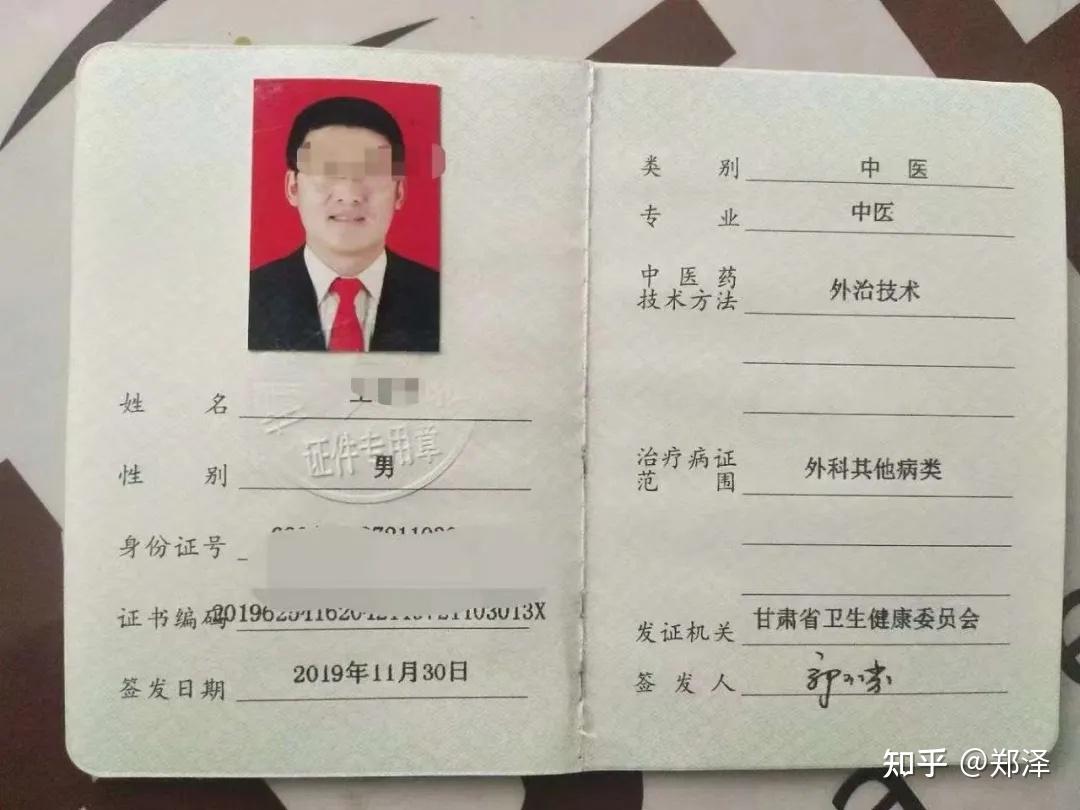 姓名
证件专用章
性别 男
身份证号
证书编码
签发日期 2019年11月30日
类别 中医
专业 中医
中医药
技术方法 外治技术
治疗病证
范围 外科其他病类
发证机关 甘肃省卫生健康委员会
签发人
知乎 @郑泽